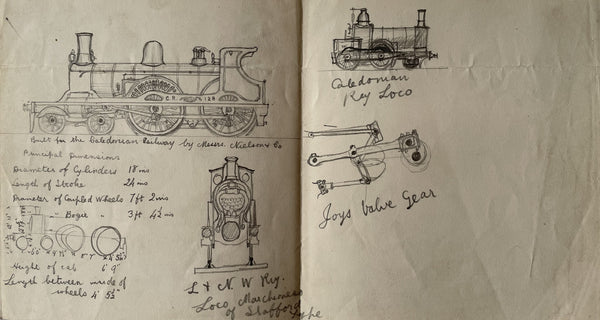 C.R. No 128
Built for the Caledonian Railway by Messrs. Nielson & Co
Principal Dimensions
Diameter of Cylinders 18 ins
Length of Stroke 24 ins
Diameter of Coupled Wheels 7 ft 2 ins
" Bogie " 3 ft 4½ ins
Height of cab 6' 9"
Length between inside of
wheels 4' 5½"
L & N. W Ry.
Loco Marchioness
of Stafford type
Caledonian
Rey Loco
Joys Valve Gear